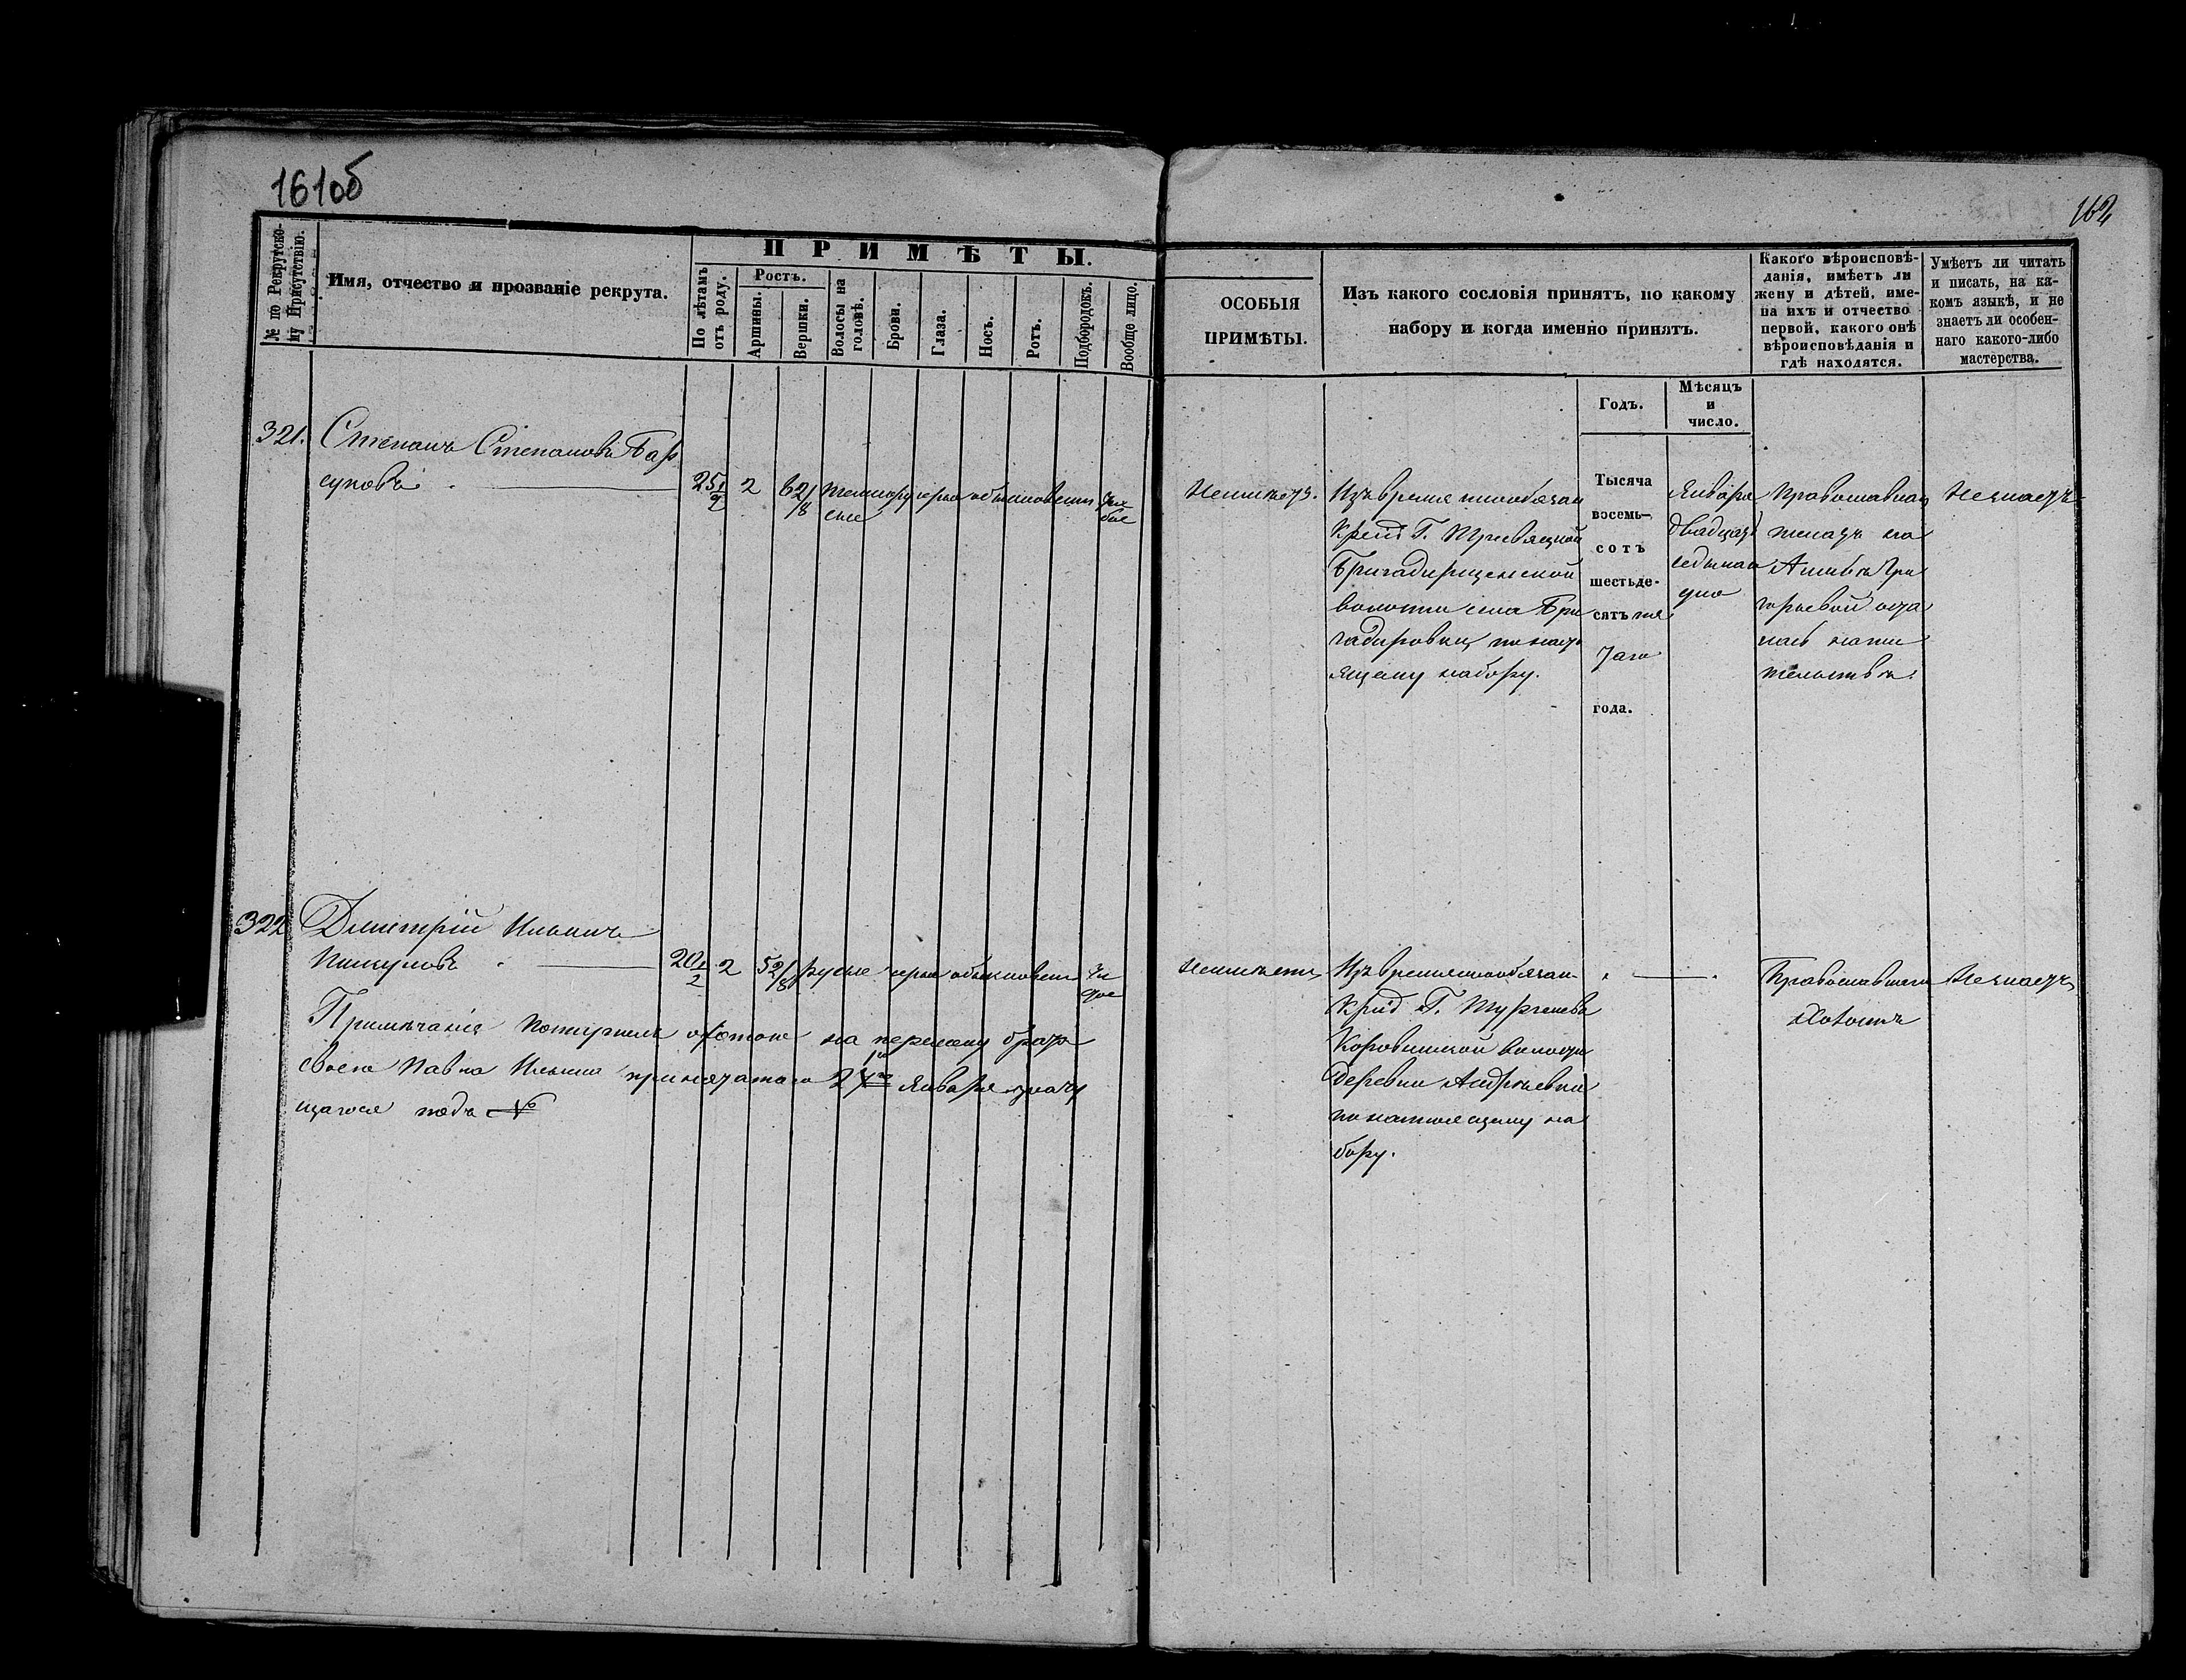 161об
162
№ по Рекрутско-
му Присутствію.
Имя, отчество и прозваніе рекрута.
ПРИМѢТЫ.
По лѣтамъ
отъ роду.
Ростъ.
Аршины.
Вершки.
Волосы на
головѣ.
Брови.
Глаза.
Носъ.
Ротъ.
Подбородокъ.
Вообще лицо.
ОСОБЫЯ
ПРИМѢТЫ.
Изъ какого сословія принятъ, по какому
набору и когда именно принятъ.
Годъ.
Мѣсяцъ
и
число.
Какого вѣроисповѣ-
данія, имѣетъ ли
жену и дѣтей, име-
на ихъ и отчество
первой, какого онѣ
вѣроисповѣданія и
гдѣ находятся.
Умѣетъ ли читать
и писать, на ка-
комъ языкѣ, и не
знаетъ ли особен-
наго какого-либо
мастерства.
321.
Степанъ Степановъ Бар
суковъ
25 1/2
2
6 2/8
темнору
сые
сѣрые
обыкновенн
Неимѣетъ.
Изъ временнообязан
Крест Г.
Бригадирщенской
волости села Бри
гадировки, по насто
ящему набору.
Тысяча
восемь-
сотъ
шестьде-
сятъ пя
таго
года.
Января
двадцать
седьмаго
дня
Православнаго
женатъ на
Гри
горьевой оста
лась на жи
тельствѣ.
Незнаетъ
322
Дмитрій Ильинъ
20 1/2
2
5 2/8
русые
сѣрые
обыкновенн
Неимѣетъ
Изъ временнообязан-
Крест Г. Тургенева
Коровинской волости
Деревни Андреевки
по настоящему на
бору.
Православнаго
Холостъ
Незнаетъ
Примѣчаніе Поступилъ охотою на перемену брата
своего Павла Ильина принятаго 24го Января значу
щагося подъ №